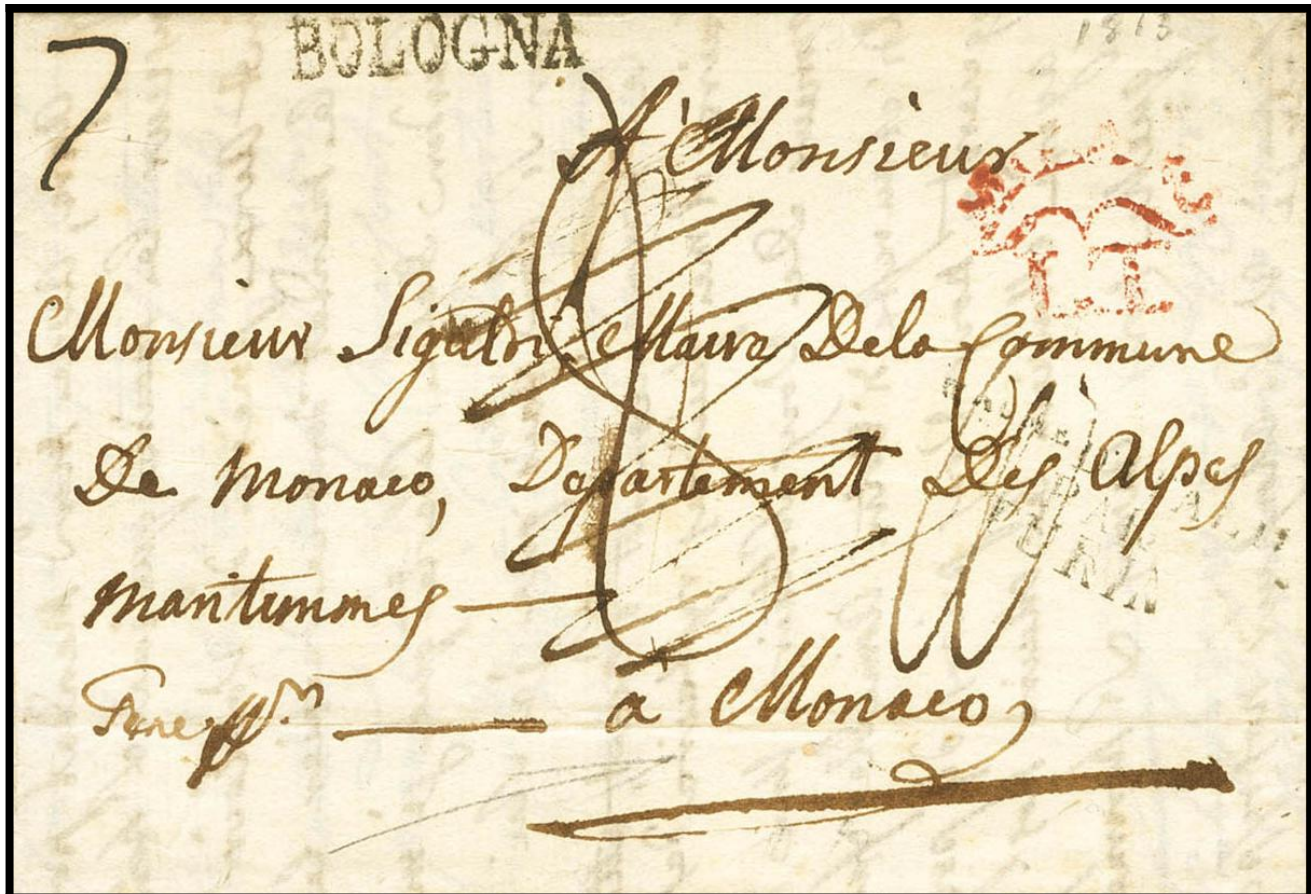 7
BOLOGNA
1813
A Monsieur
L.I.
Monsieur Sigaldi Maire De la Commune
De Monaco, Departement Des Alpes
Maritimmes
à Monaco